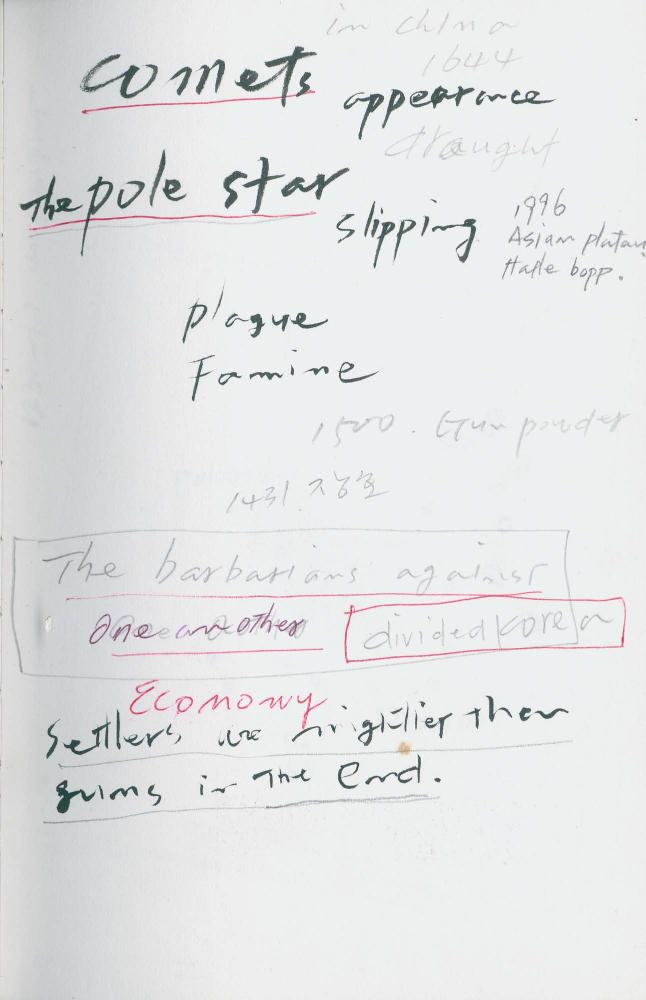 in china
1644
comets
appearance
draught
The pole star
slipping
1996
Asian platau
Halle bopp.
plague
Famine
1500. Gun powder
1431 장호
The barbarians against
One another
divided korea
Economy
Settlers are mightlier then
guns in The End.